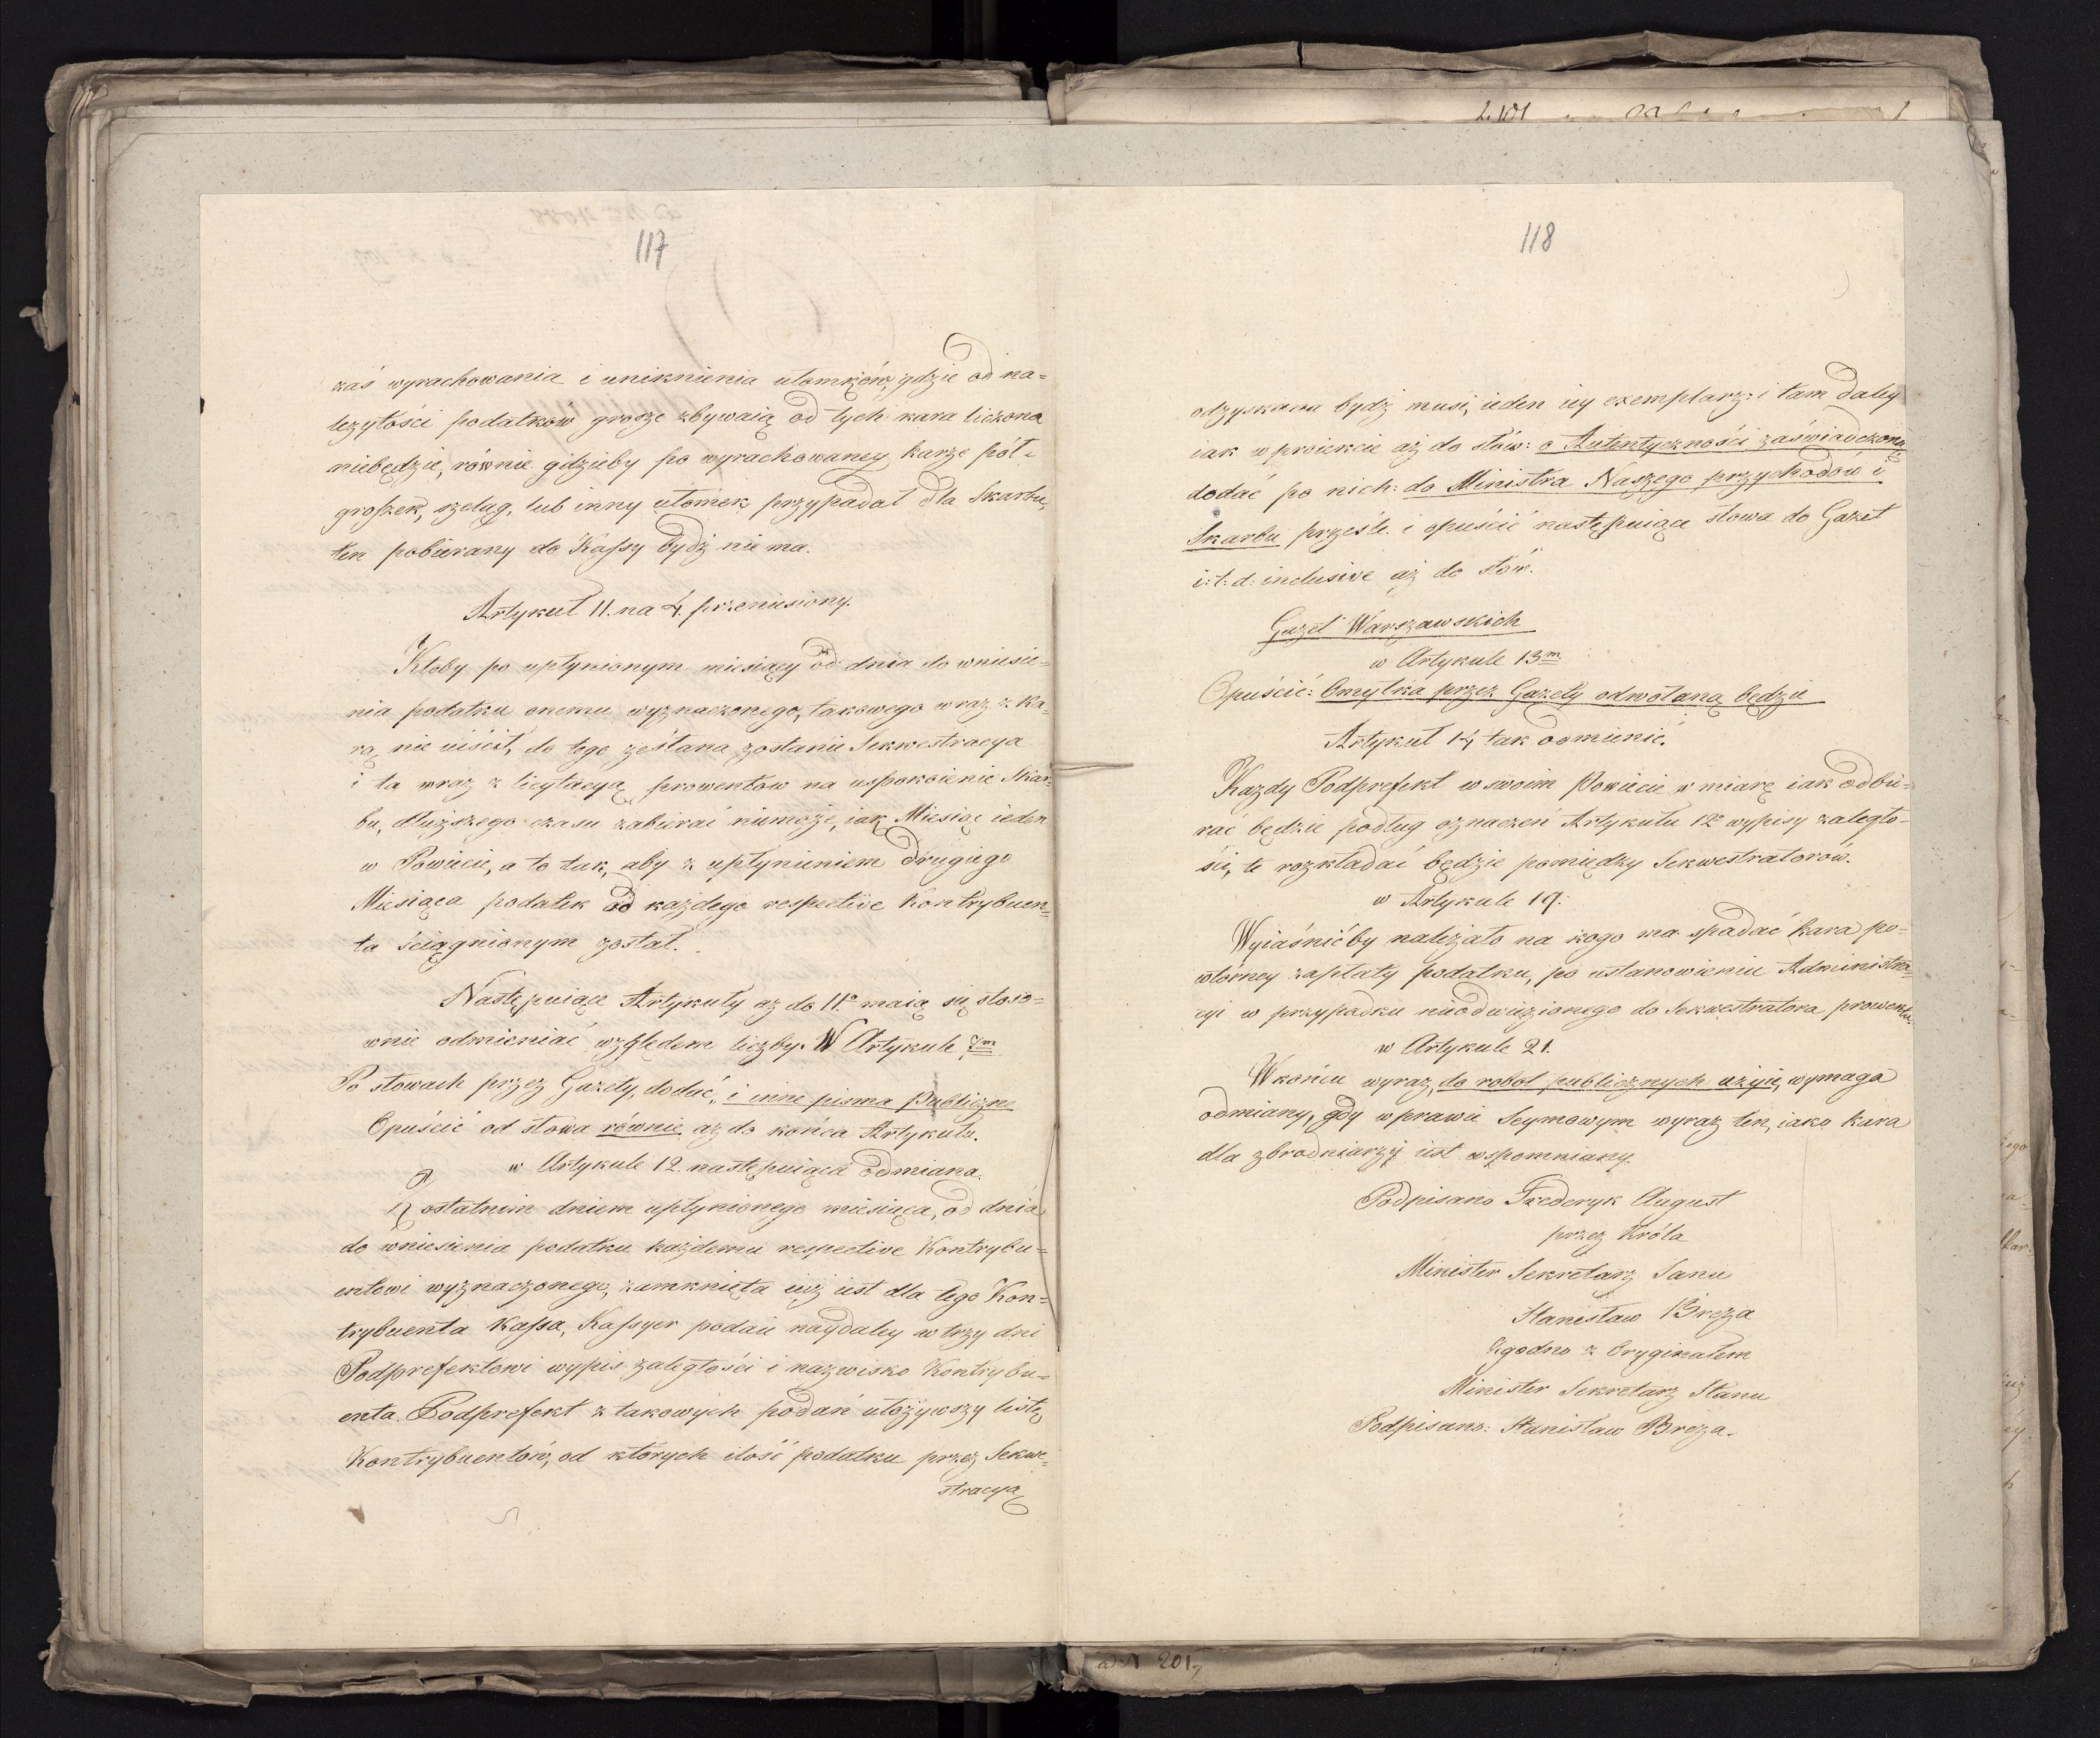 117
zaś wyrachowania i uniknienia ułomków, gdzie od na=
leżytości podatków grosze zbywaią od tych kara liczona
niebędzie, równie gdzieby po wyrachowaney karze pół=
groszek, szeląg, lub inny ułomek przypadał dla Skarbu,
ten pobierany do Kassy bydź nie ma.
Artykuł 11. na 4. przeniesiony.
Ktoby po upłynionym miesiący od dnia do wniesie=
nia podatku onemu wyznaczonego, takowego wraz z Ka=
rą nie uiścił, do tego zesłana zostanie Sekwestracya
i ta wraz z licytacyą prowentow na uspokoienie Skar=
bu, dłuższego czasu zabierać niemoże, iak Miesiąc ieden
w Powiecie, a to tak, aby z upłynieniem drugiego
Miesiąca podatek od każdego respective Kontrybuen=
ta ściągnionym został.
Następuiące Artykuły aż do 11º maią się stoso=
wnie odmieniać względem liczby. W Artykule 7m
Po słowach przez Gazety, dodać, i inne pisma publiczne
Opuścić od słowa równie aż do końca Artykułu.
w Artykule 12. następuiąca odmiana.
Z ostatnim dniem upłynionego miesiąca, od dnia
do wniesienia podatku każdemu respective Kontrybu=
entowi wyznaczonego, zamknięta iuż iest dla tego Kon=
trybuenta Kassa, Kassyer podaie naydaley w trzy dni
Podprefektowi wypis zaległości i nazwisko Kontrybu=
enta. Podprefekt z takowych podań ułożywszy listę
Kontrybuentów, od których ilość podatku przez Sekwe=
stracyą
118
odzyskana bydź musi, ieden iey exemplarz: i tam daley
iak w proiekcie aż do słów: o Autentyczności zaświadczoną
dodać po nich: do Ministra Naszego przychodów i
Skarbu prześle. i opuścić następuiące słowa do Gazet
i: t: d: inclusive aż do słów.
Gazet Warszawskich
w Artykule 13m
Opuścić: Omyłka przez Gazety odwołaną będzie
Artykuł 14 tak odmienić.
Każdy Podprefekt w swoim Powiecie w miarę iak odbie=
rać będzie podług oznaczeń Artykułu 12º wypisy zaległo=
ści, te rozkładać będzie pomiędzy Sekwestratorów.
w Artykule 19.
Wyiaśnićby należało na kogo ma spadać kara po=
wtórney zapłaty podatku, po ustanowieniu Administra=
cyi w przypadku nieodwiezionego do Sekwestratora prowentu.
w Artykule 21.
W końcu wyraz, do robot publicznych użyie, wymaga
odmiany, gdy w prawie Seymowym wyraz ten, iako kara
dla zbrodniarzy iest wspomniany.
Podpisano Frederyk August
przez Króla
Minister Sekretarz Sanu
Stanisław Breza
Zgodno z Oryginałem
Minister Sekretarz Stanu
Podpisano: Stanisław Breza.
ad N 2017